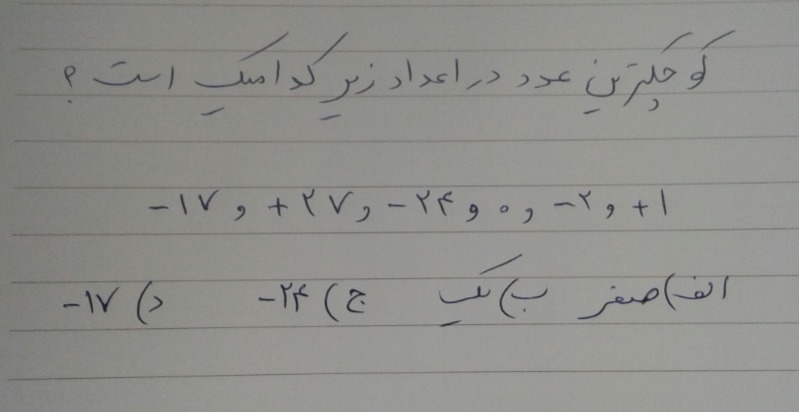 کوچکترین عدد در اعداد زیر کدامیک است ؟
+۱ و -۲ و ۰ و -۲۴ و +۲۷ و -۱۷
الف) صفر ب) یک ج) -۲۴ د) -۱۷